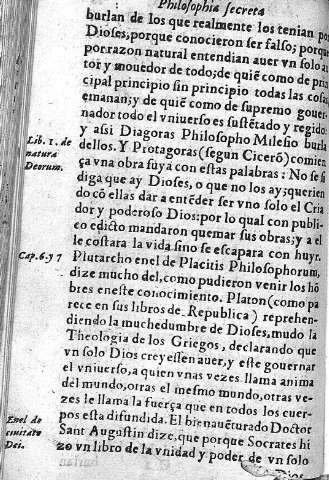 Philosophia secreta
burlan de los que realmente los tenian por
Dioses, porque conocieron ser falsos; porque
por razon natural entendian auer vn solo au
tor y mouedor de todo; de quiẽ como de prin
cipal principio sin principio todas las cosas
emanan; y de quiẽ como de supremo gouer
nador todo el vniuerso es sustẽtado y regido
y asi Diagoras Philosopho Milesio burla
Lib. 1. de
natura
Deorum.
dellos. Y Protagoras (segun Cicerõ) comien
ça vna obra suya con estas palabras: No se si
diga que ay Dioses, o que no los ay; querien
do cõ ellas dar a entẽder ser vno solo el Cria
dor y poderoso Dios: por lo qual con publi
co edicto mandaron quemar sus obras; y a el
le costara la vida sino se escapara con huyr.
Cap. 6. y 7
Plutarcho en el de Placitis Philosophorum,
dize mucho del, como pudieron venir los hõ
bres en este conocimiento. Platon (como pa
rece en sus libros de Republica) reprehen-
diendo la muchedumbre de Dioses, mudo la
Theologia de los Griegos, declarando que
vn solo Dios creyessen auer, y este gouernar
el vniuerso, a quien vnas vezes llama anima
del mundo, otras el mesmo mundo, otras ve-
zes le llama la fuerça que en todos los cuer-
pos esta difundida. El bienauẽturado Doctor
Enel de
ciuitate
Dei.
Sant Augustin dize, que porque Socrates hi
zo vn libro de la vnidad y poder de vn solo
Dios